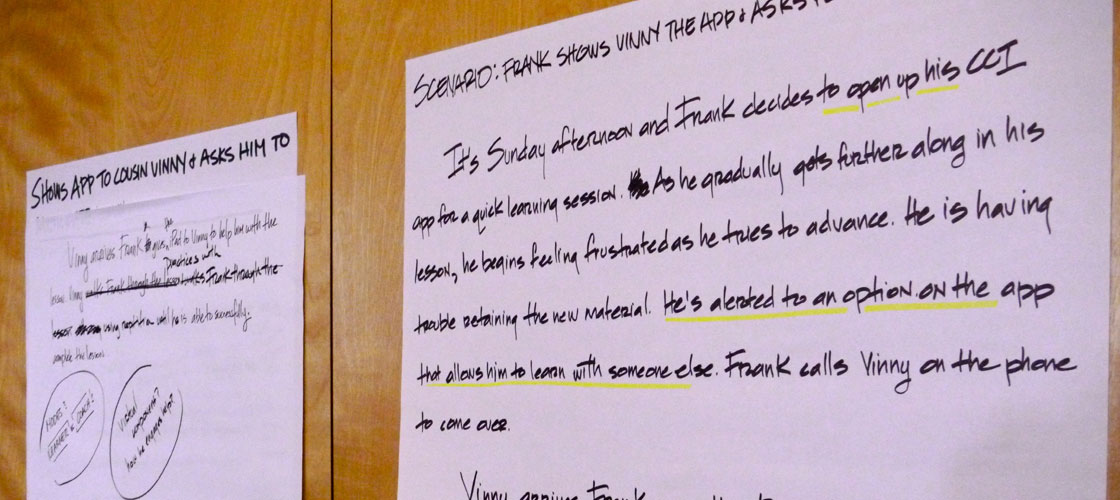 SHOWS APP TO COUSIN VINNY & ASKS HIM TO
Vinny arrives Frank gives iPad to Vinny to help him with the
lesson. Vinny walks Frank through the lesson walks Frank through the
practices with
lesson using repetition until he is able to successfully
complete the lesson.
MODEL?
LEARNER & COACH?
Visual component?
how he engages help?
SCENARIO: FRANK SHOWS VINNY THE APP & ASKS
It's Sunday afternoon and Frank decides to open up his CCI
app for a quick learning session. As he gradually gets further along in his
lesson, he begins feeling frustrated as he tries to advance. He is having
trouble retaining the new material. He's alerted to an option on the app
that allows him to learn with someone else. Frank calls Vinny on the phone
to come over.
Vinny arrives Frank